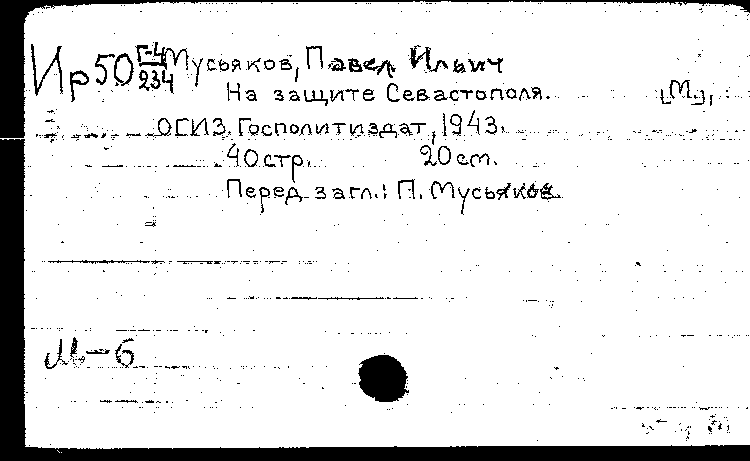 Ир50 Г-4/234 Мусьяков, Павел Ильич
На защите Севастополя. [М.],
ОГИЗ. Госполитиздат, 1943.
40 стр. 20 см.
Перед загл.: П. Мусьяков.
М-6